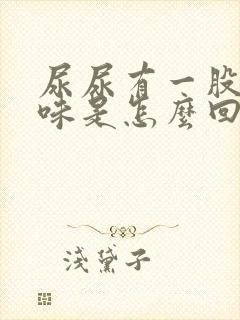 尿尿有一股
味是怎麼回
淺黛子